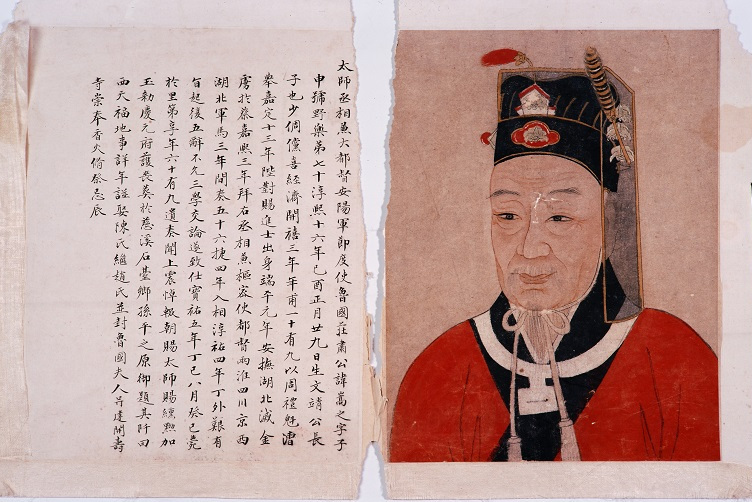 太師丞相魚大都督安陽軍節度使魯國莊肅公諱嵩之字子
申號野樂第七十淳熙十六年己酉正月廿九日生文靖公長
子也少倜儻喜經濟開禧三年年甫一十有九以周禮魁漕
舉嘉定十三年陛對賜進士出身端平元年安撫湖北滅金
虜於蔡嘉熙三年拜右丞相魚樞密使都督兩淮四川京西
湖北軍馬三年間奏五十六捷四年入相淳祐四年丁外艱有
旨起復五辭不允三學交論遂致仕寶祐五年丁巳八月癸巳薨
於里第享年六十有九遺奏聞上震悼輟朝賜太師賜纁勲加
玉勅慶元府護喪葬於慈溪石臺鄉孫平之原御題其阡曰
西天福地事詳年譜娶陳氏繼趙氏並封魯國夫人吳建開壽
寺崇奉香火脩祭忌辰